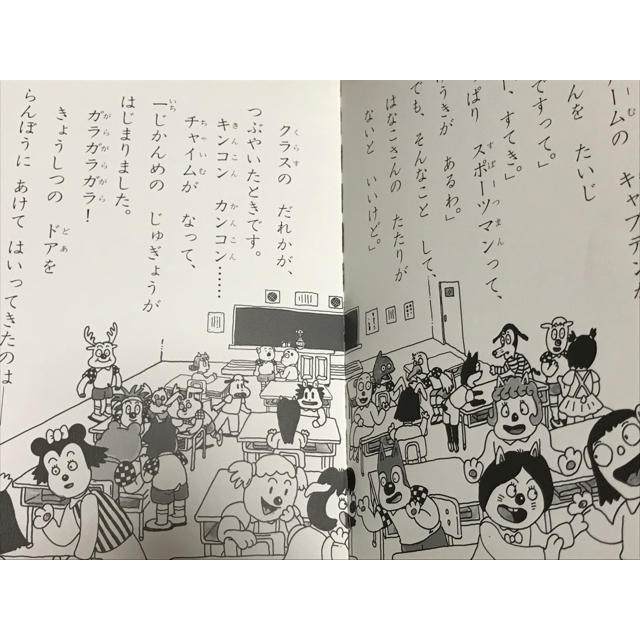 ームの キャプテンが
んを たいじ
ですって。」
ー、すてき。」
ぱり スポーツマンって、
うきが あるわ。」
でも、そんなこと して、
はなこさんの たたりが
ないと いいけど。」
クラスの だれかが、
つぶやいたときです。
キンコン カンコン……
チャイムが なって、
一じかんめの じゅぎょうが
はじまりました。
ガラガラガラ！
きょうしつの ドアを
らんぼうに あけて はいってきたのは──